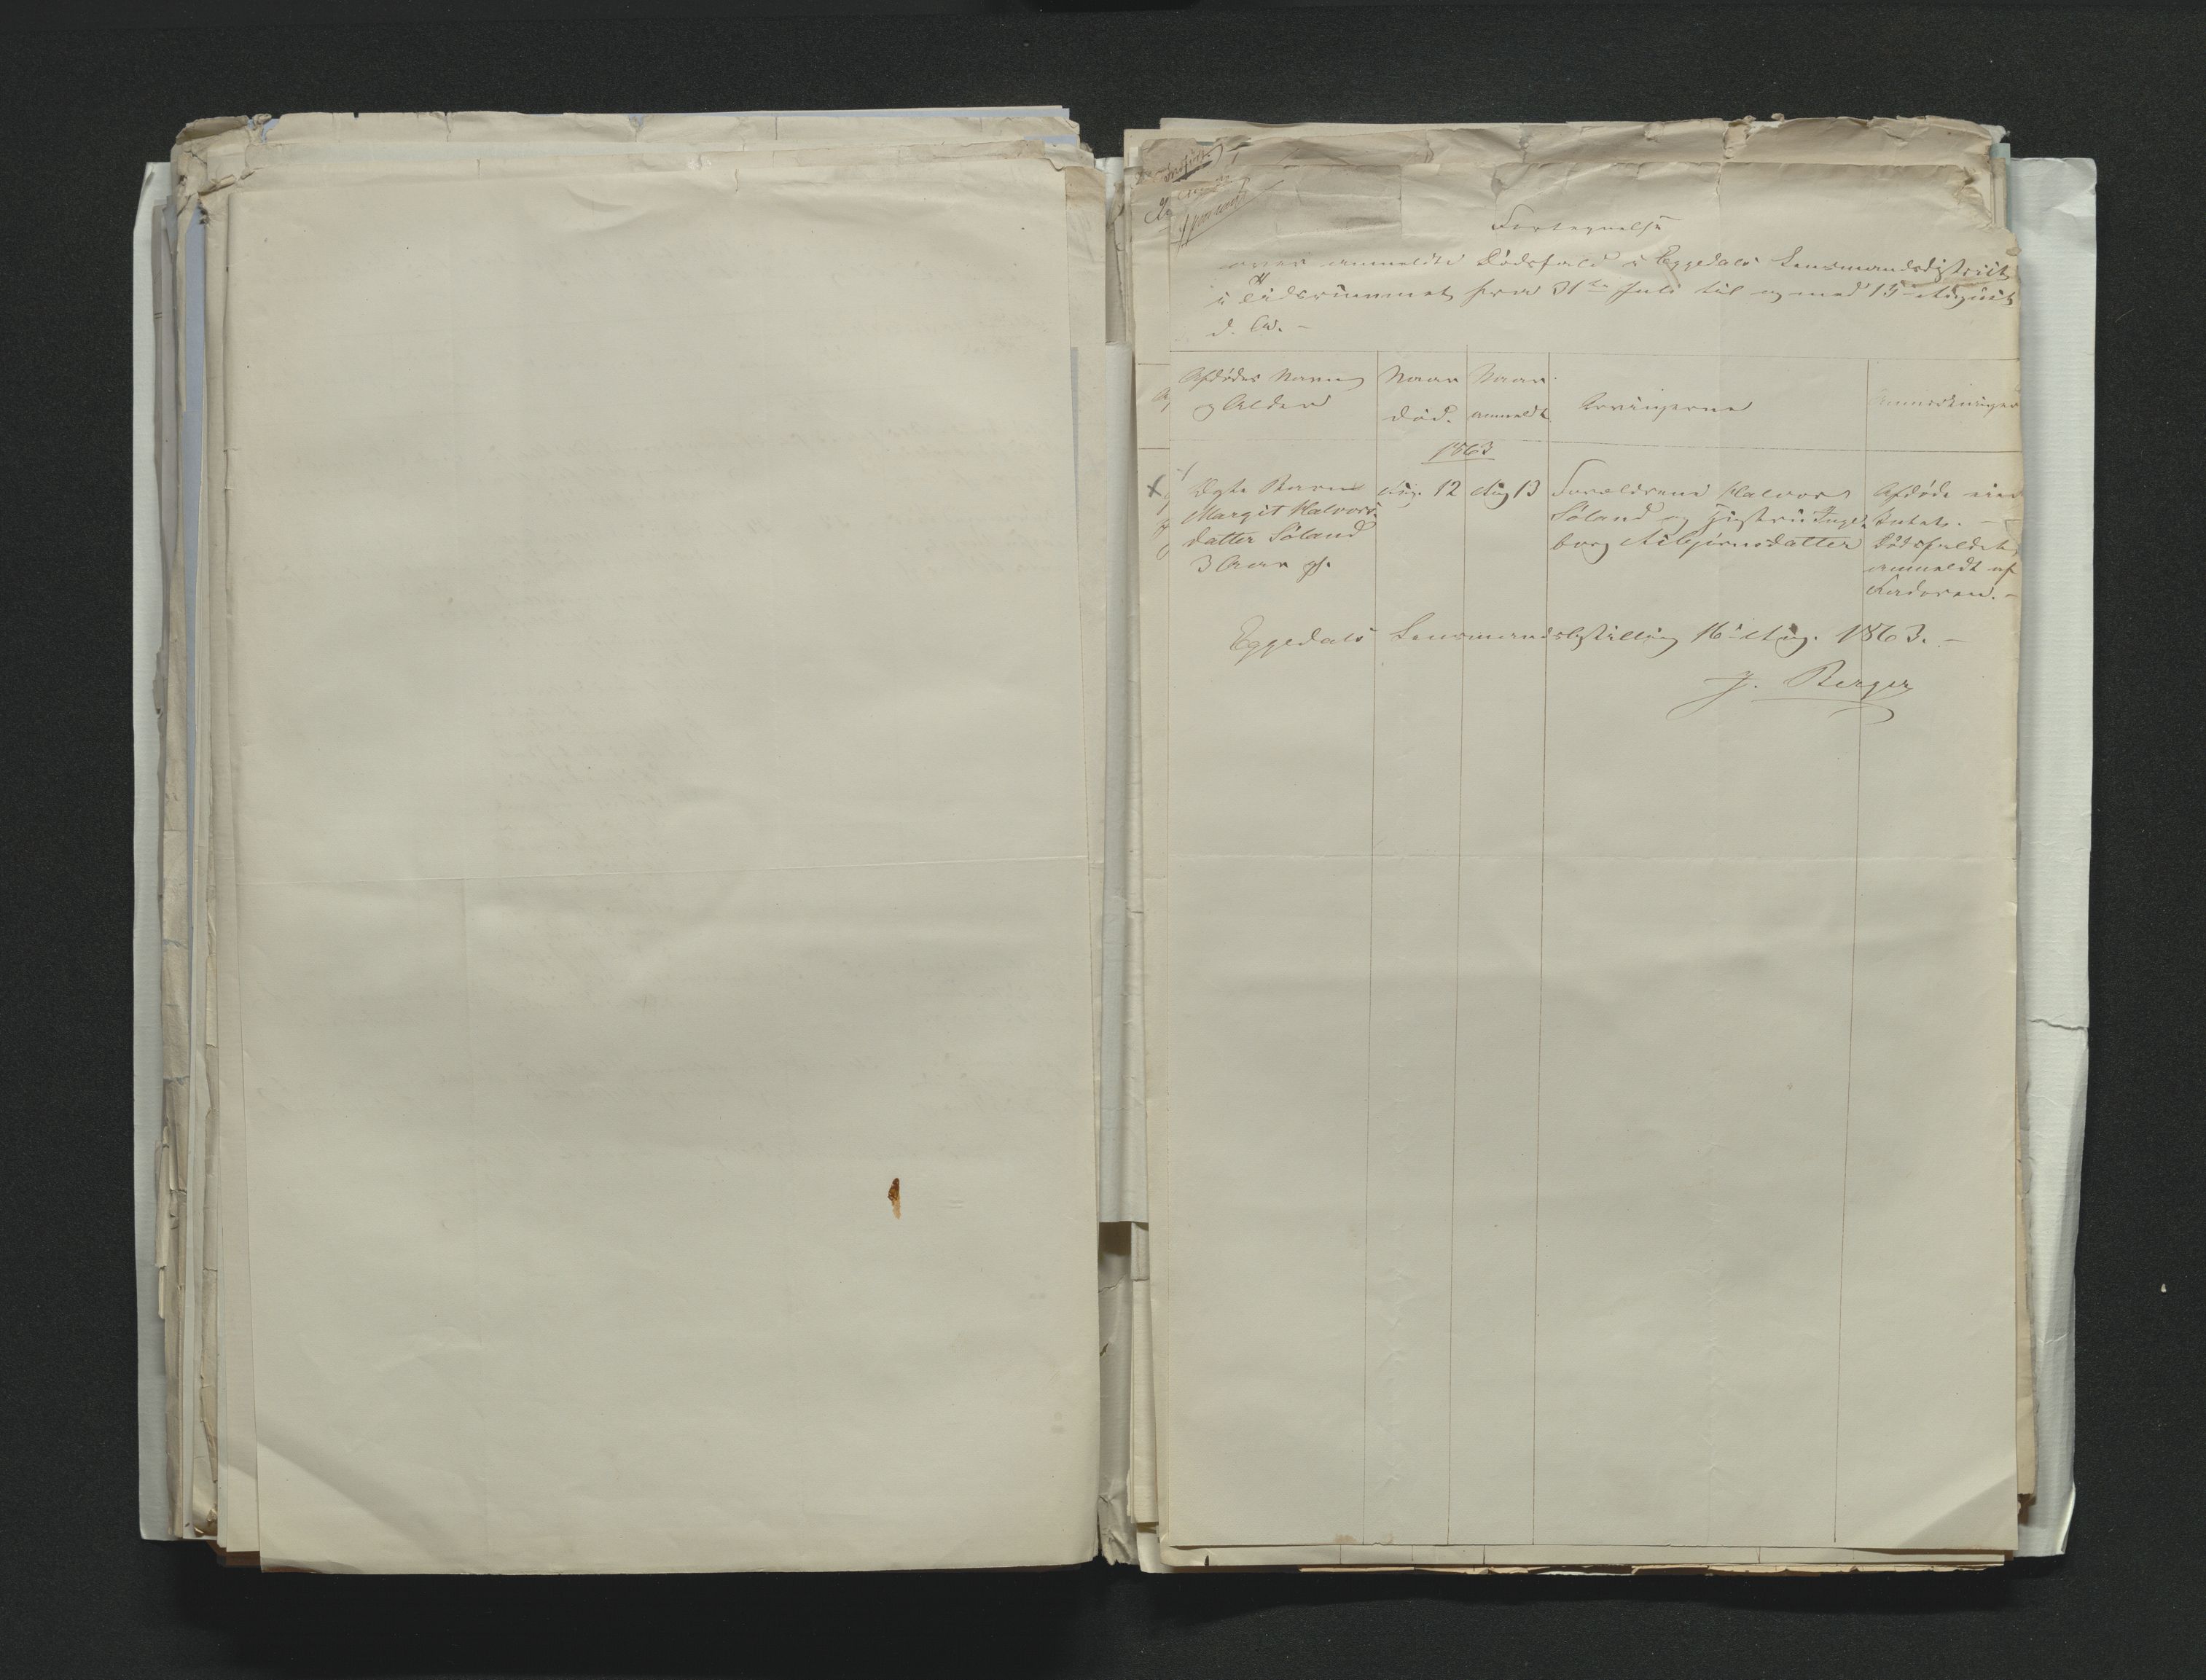 Fortegnelse
over anmeldte Dødsfald i Eggedals Lensmandsdistrict
i Tidsrummet fra 31te Juli til og med 15de August
d. A. –
Afdødes Navn Naar Naar Arvingerne Anmærkninger
og Alder død. anmeldt
1863
Ægte Barn Aug. 12 Aug 13 Forældrene Halvor Afdøde eier
Margit Halvors- Søland og Hustru Inge- Intet. –
datter Søland borg Asbjørnsdatter Dødsfaldet
3 Aar gl. anmeldt af
Faderen. –
Eggedals Lensmandsbestilling 16de Aug. 1863. –
J. Berger